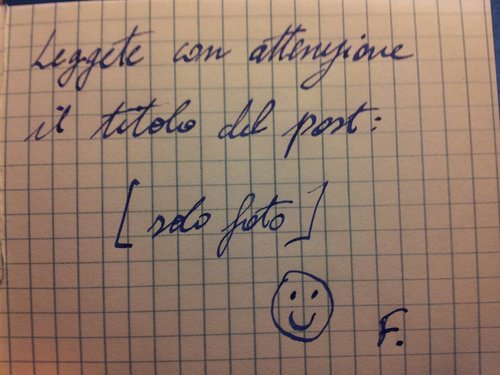 Leggete con attenzione
il titolo del post:
[solo foto]
F.